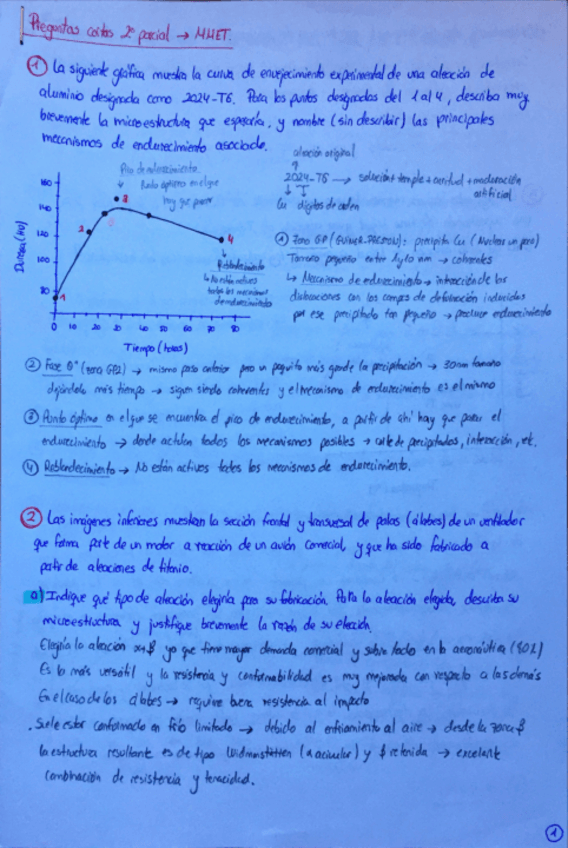 Preguntas cortas 2º parcial → MMET.
① La siguiente gráfica muestra la curva de envejecimiento experimental de una aleación de
aluminio designada como 2024-T6. Para los puntos designados del 1 al 4, describa muy
brevemente la microestructura que esperaría, y nombre (sin describir) las principales
mecanismos de endurecimiento asociado.
aleación original
2024-T6 → solución + temple + acritud + maduración
artificial
↓ T
Cu dígitos de orden
Pico de endurecimiento.
↓ Punto óptimo en el que
hay que parar
Dureza (HV)
160
140
120
100
80
1
2
3
4
Reblandecimiento
↳ No están activos
todos los mecanismos
de endurecimiento
0 10 20 30 40 50 60 70 80
Tiempo (horas)
① Zona GP (GUINIER-PRESTON): precipita Cu (Nuclear un poco)
Tamaño pequeño entre 2 y 10 nm → coherentes
↳ Mecanismo de endurecimiento → interacción de las
dislocaciones con los campos de deformación inducidos
por ese precipitado tan pequeño → producen endurecimiento
② Fase θ" (zona GP2) → mismo paso anterior pero un poquito más grande la precipitación → 30nm tamaño
dejándolo más tiempo → siguen siendo coherentes y el mecanismo de endurecimiento es el mismo
③ Punto óptimo en el que se encuentra el pico de endurecimiento, a partir de ahí hay que parar el
endurecimiento → donde actúan todos los mecanismos posibles → corte de precipitados, interacción, etc.
④ Reblandecimiento → No están activos todos los mecanismos de endurecimiento.
② Las imágenes inferiores muestran la sección frontal y transversal de palas (álabes) de un ventilador
que forma parte de un motor a reacción de un avión comercial, y que ha sido fabricado a
partir de aleaciones de titanio.
a) Indique qué tipo de aleación elegiría para su fabricación. Para la aleación elegida, describa su
microestructura y justifique brevemente la razón de su elección.
Elegiría la aleación α+β ya que tiene mayor demanda comercial y sobre todo en la aeronáutica (80%)
Es la más versátil y la resistencia y conformabilidad es muy mejorada con respecto a las demás
En el caso de los álabes → requiere buena resistencia al impacto
. Suele estar conformado en frío limitado → debido al enfriamiento al aire → desde la zona β
la estructura resultante es de tipo Widmanstätten (α acicular) y β retenida → excelente
combinación de resistencia y tenacidad.
1